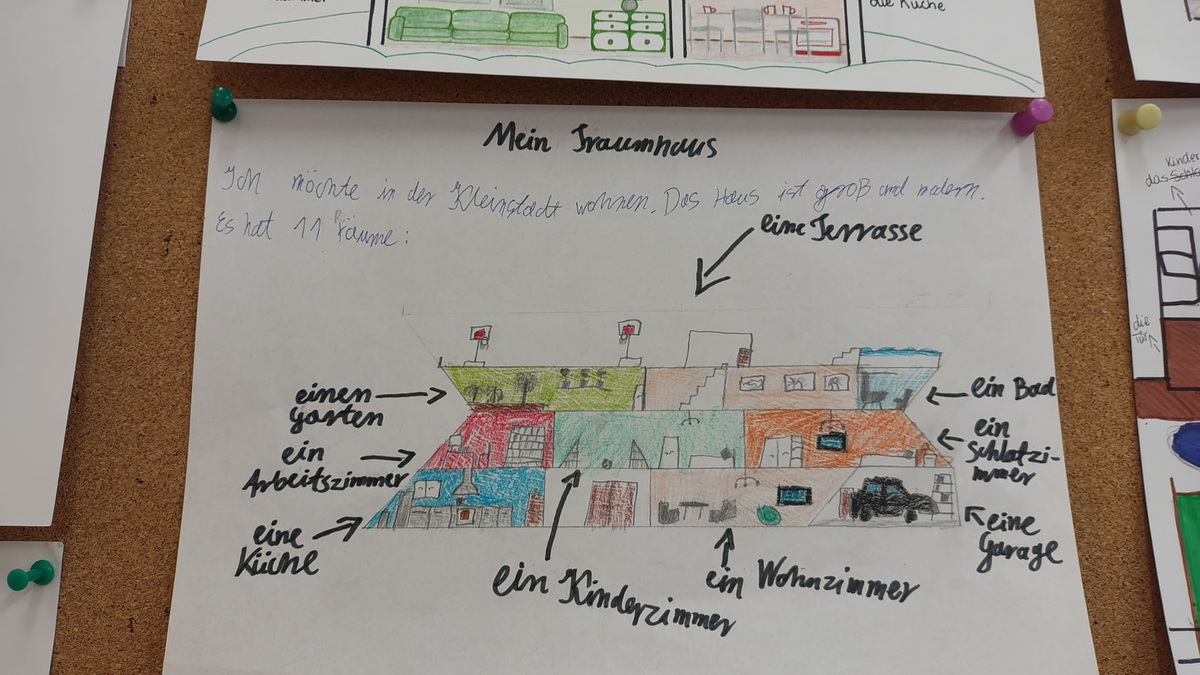 die Küche
Mein Traumhaus
Ich möchte in der Kleinstadt wohnen. Das Haus ist groß und modern.
Es hat 11 Räume:
eine Terrasse
einen
Garten
ein Bad
ein
Arbeitszimmer
ein
Schlafzi-
mmer
eine
Küche
ein Kinderzimmer
ein Wohnzimmer
eine
Garage
Kinder
das
die
Tür